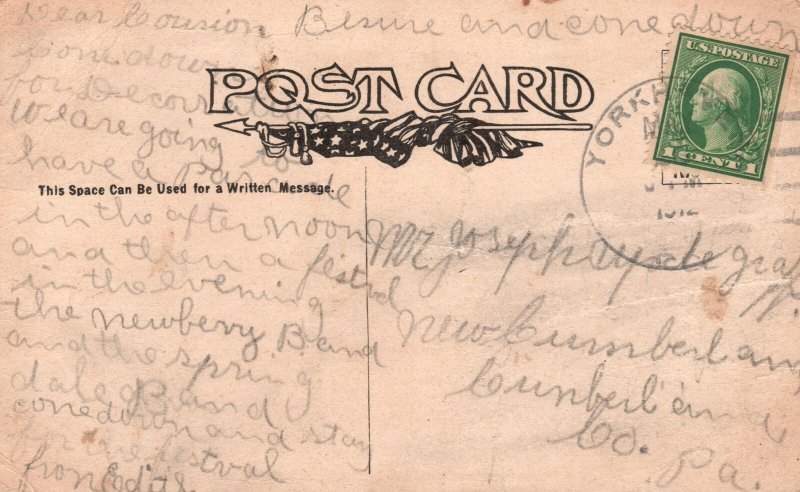 Dear Cousion Besure and cone down
Come down
for Decoration
We are going to
have a Parade
in the after noon
and then a festvel
in the evening
the Newberry Band
and the spring
dale Band
cone down and stay
for the festval
from Edith
POST CARD
This Space Can Be Used for a Written Message.
U.S. POSTAGE
1 CENT 1
YORKH
1912
Mr Joseph
New Cumberlan
Cunberland
Co.
Pa.